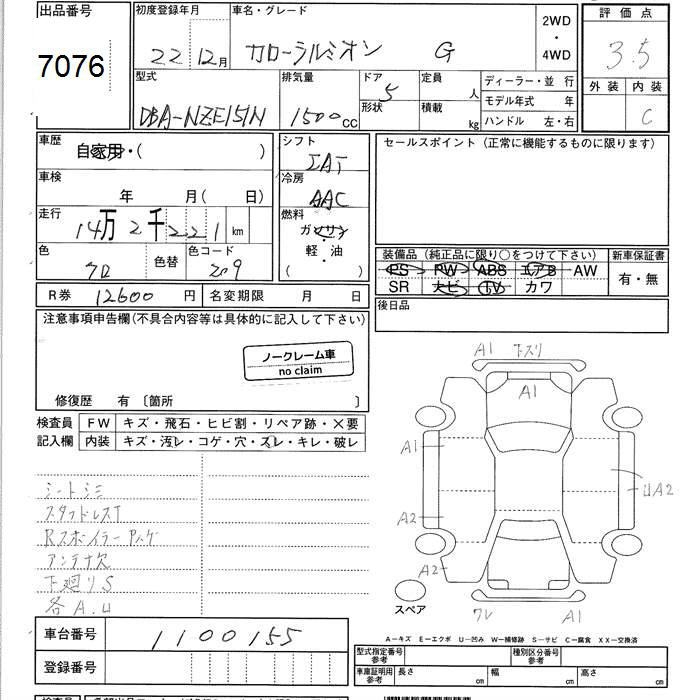 出品番号
7076
初度登録年月
22 12月
車名・グレード
カローラルミオン G
2WD
・
4WD
評価点
3.5
外装 内装
C
型式
DBA-NZE151N
排気量
1500 CC
ドア
5
形状
定員
人
積載
kg
ディーラー・並行
モデル年式 年
ハンドル 左・右
車歴
自家用・( )
シフト
IAT
セールスポイント (正常に機能するものに限ります)
車検
年 月( 日)
冷房
AAC
走行
14万2千221 km
燃料
ガソリン
軽・油
( )
色
クロ
色替
色コード
209
装備品 (純正品に限り○をつけて下さい)
新車保証書
PS PW ABS エアB AW
SR ナビ TV カワ
有・無
R券 12600 円
名変期限 月 日
後日品
注意事項申告欄(不具合内容等は具体的に記入して下さい)
ノークレーム車
no claim
修復歴 有 〔箇所 〕
検査員
記入欄
FW キズ・飛石・ヒビ割・リペア跡・×要
内装 キズ・汚レ・コゲ・穴・スレ・キレ・破レ
シートシミ
スタッドレスT
Rスポイラー
アンテナ欠
下廻りS
各A.U
A1 下スリ
A1
A1
UA2
A2
A2
スペア
ワレ A1
A-キズ E-エクボ U-凹み W-補修跡 S-サビ C-腐食 XX-交換済
車台番号
1100155
登録番号
型式指定番号
参考
種別区分番号
参考
車庫証明用
参考
長さ cm
幅 cm
高さ cm